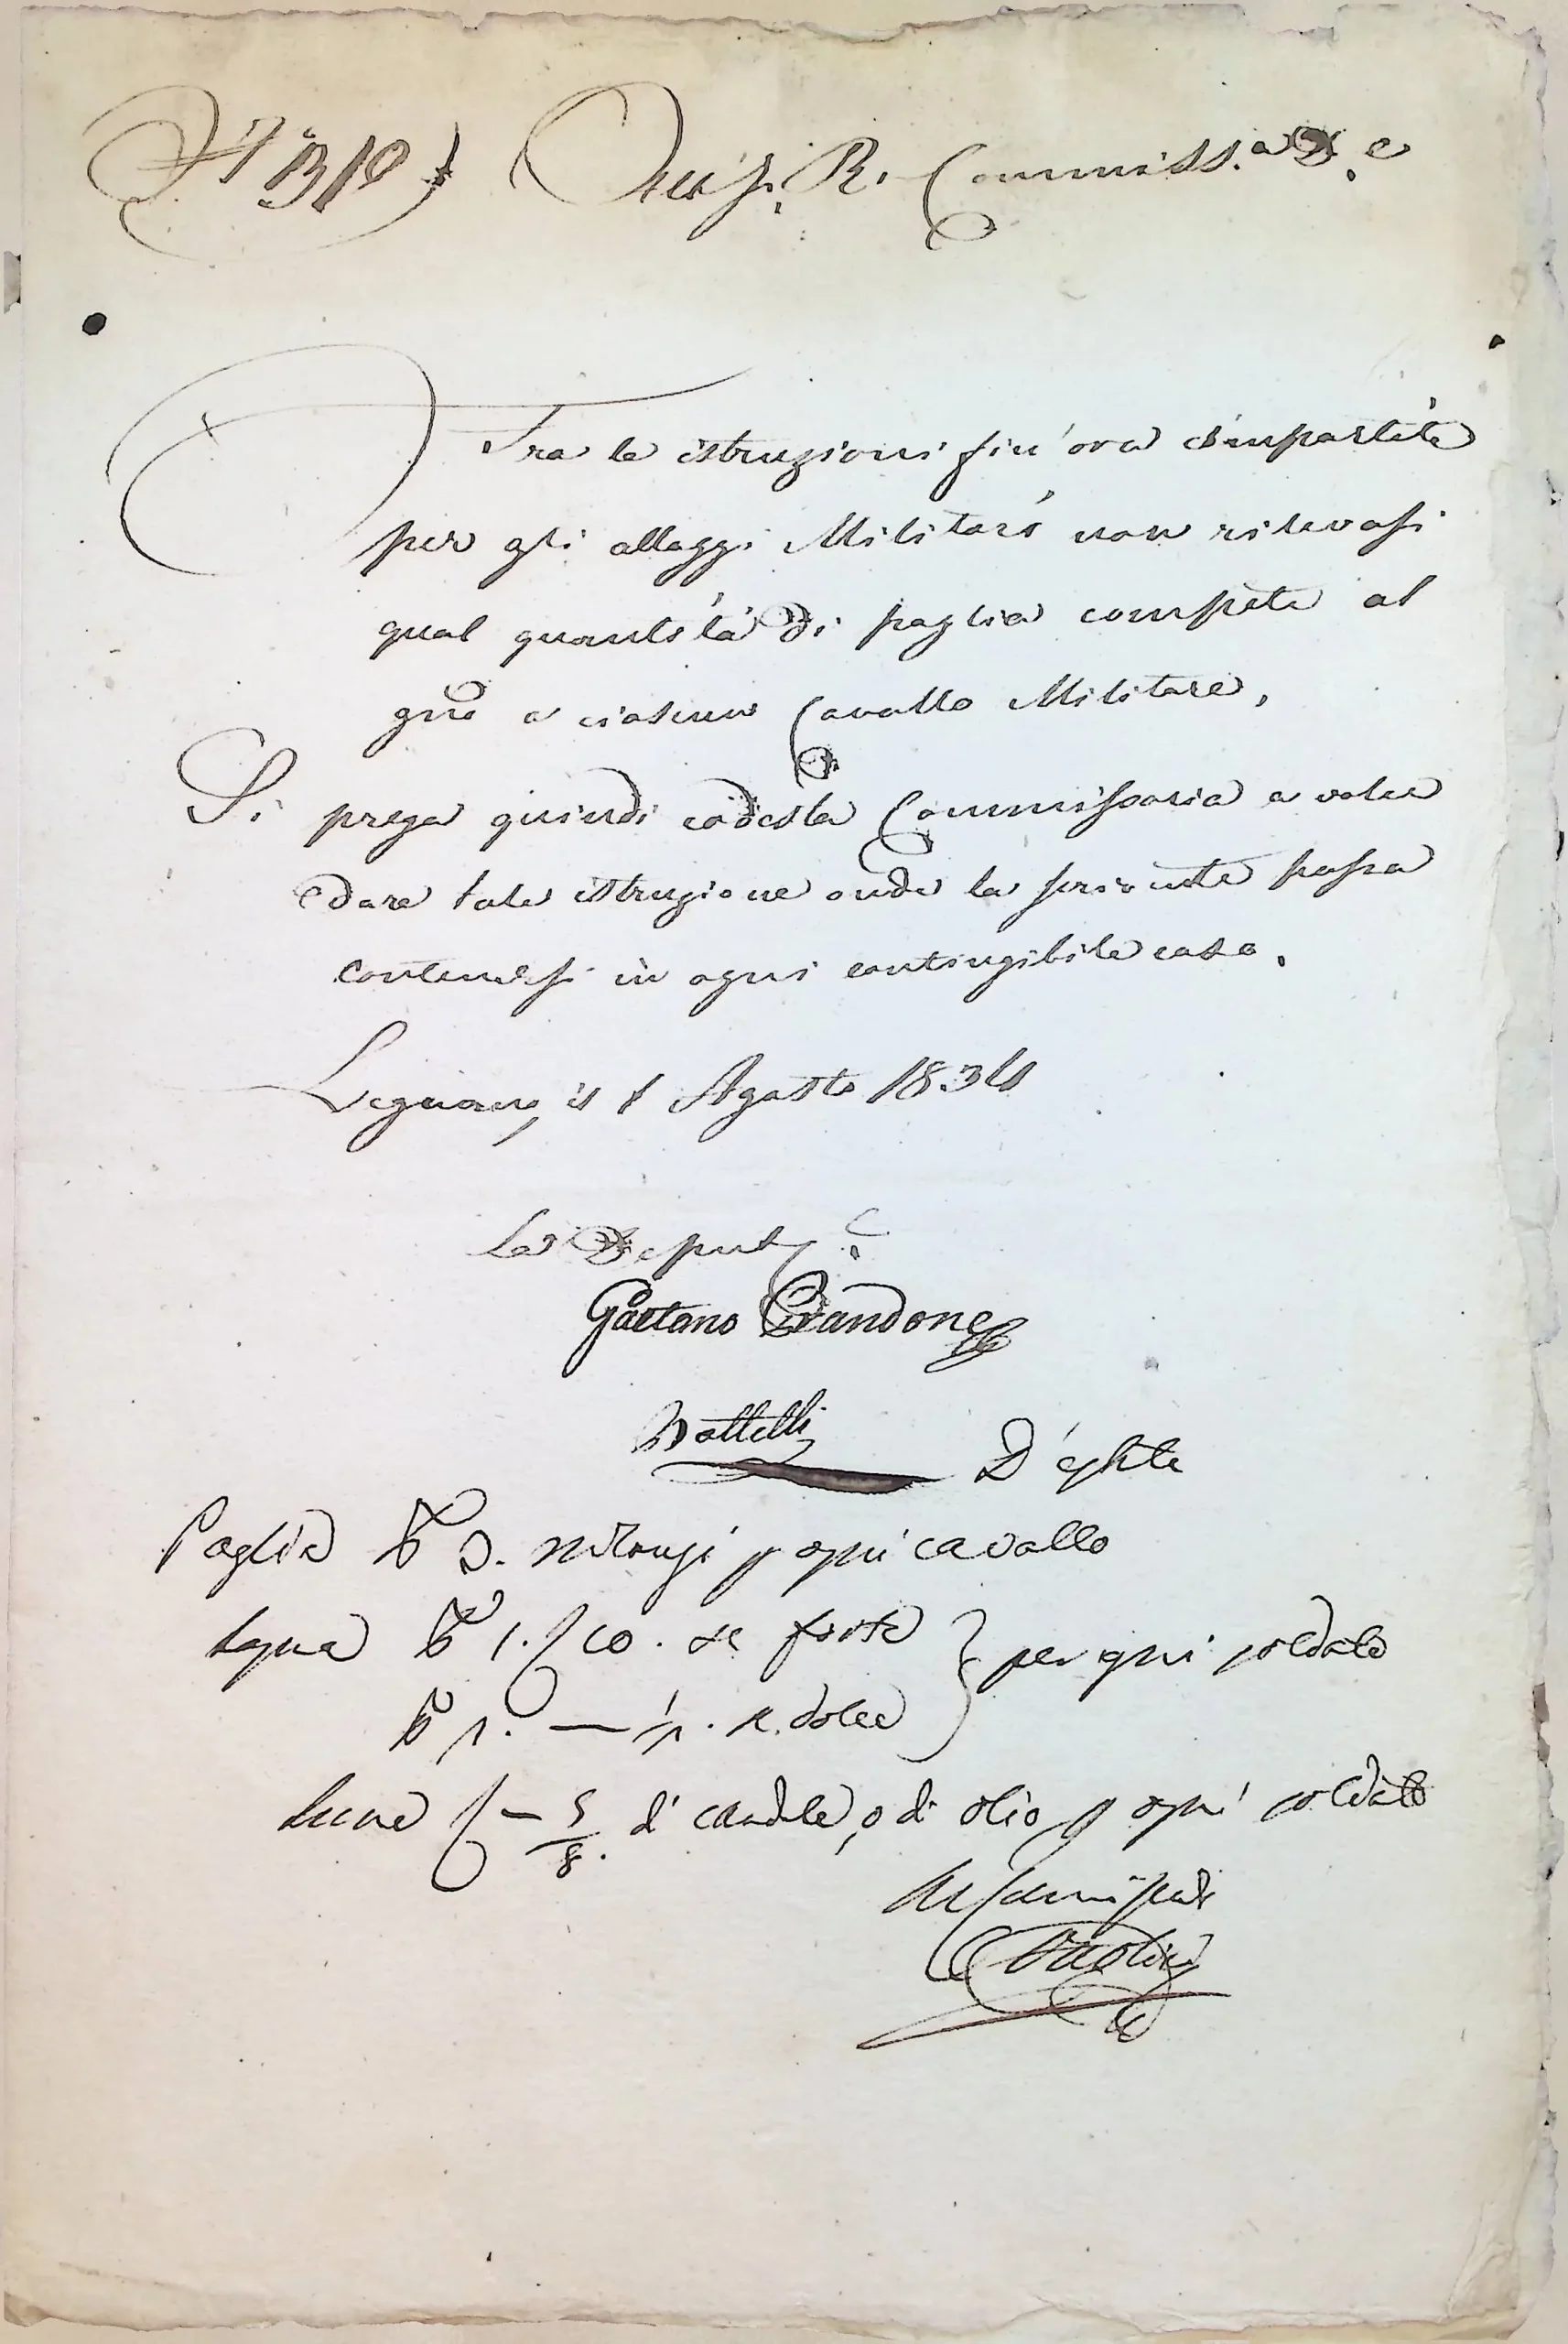 N° 310 All' I. R. Commiss.a D.e
Tra le istruzioni fin' ora impartite
per gli alloggi Militari non rilevasi
qual quantità di paglia compete al
gno a ciascun Cavallo Militare,
Si prega quindi codesta Commissaria a voler
dare tale istruzione onde la scrivente possa
contenersi in ogni contingibile caso.
Legnano, il 1 Agosto 1834
La Deput.e
Gaetano Prandone
Battelli
Paglia 3. ogni cavallo
Legna 1. 10. se forte per ogni soldato
1. se dolce
Lume - 5/8. di candele, o di olio p ogni soldato